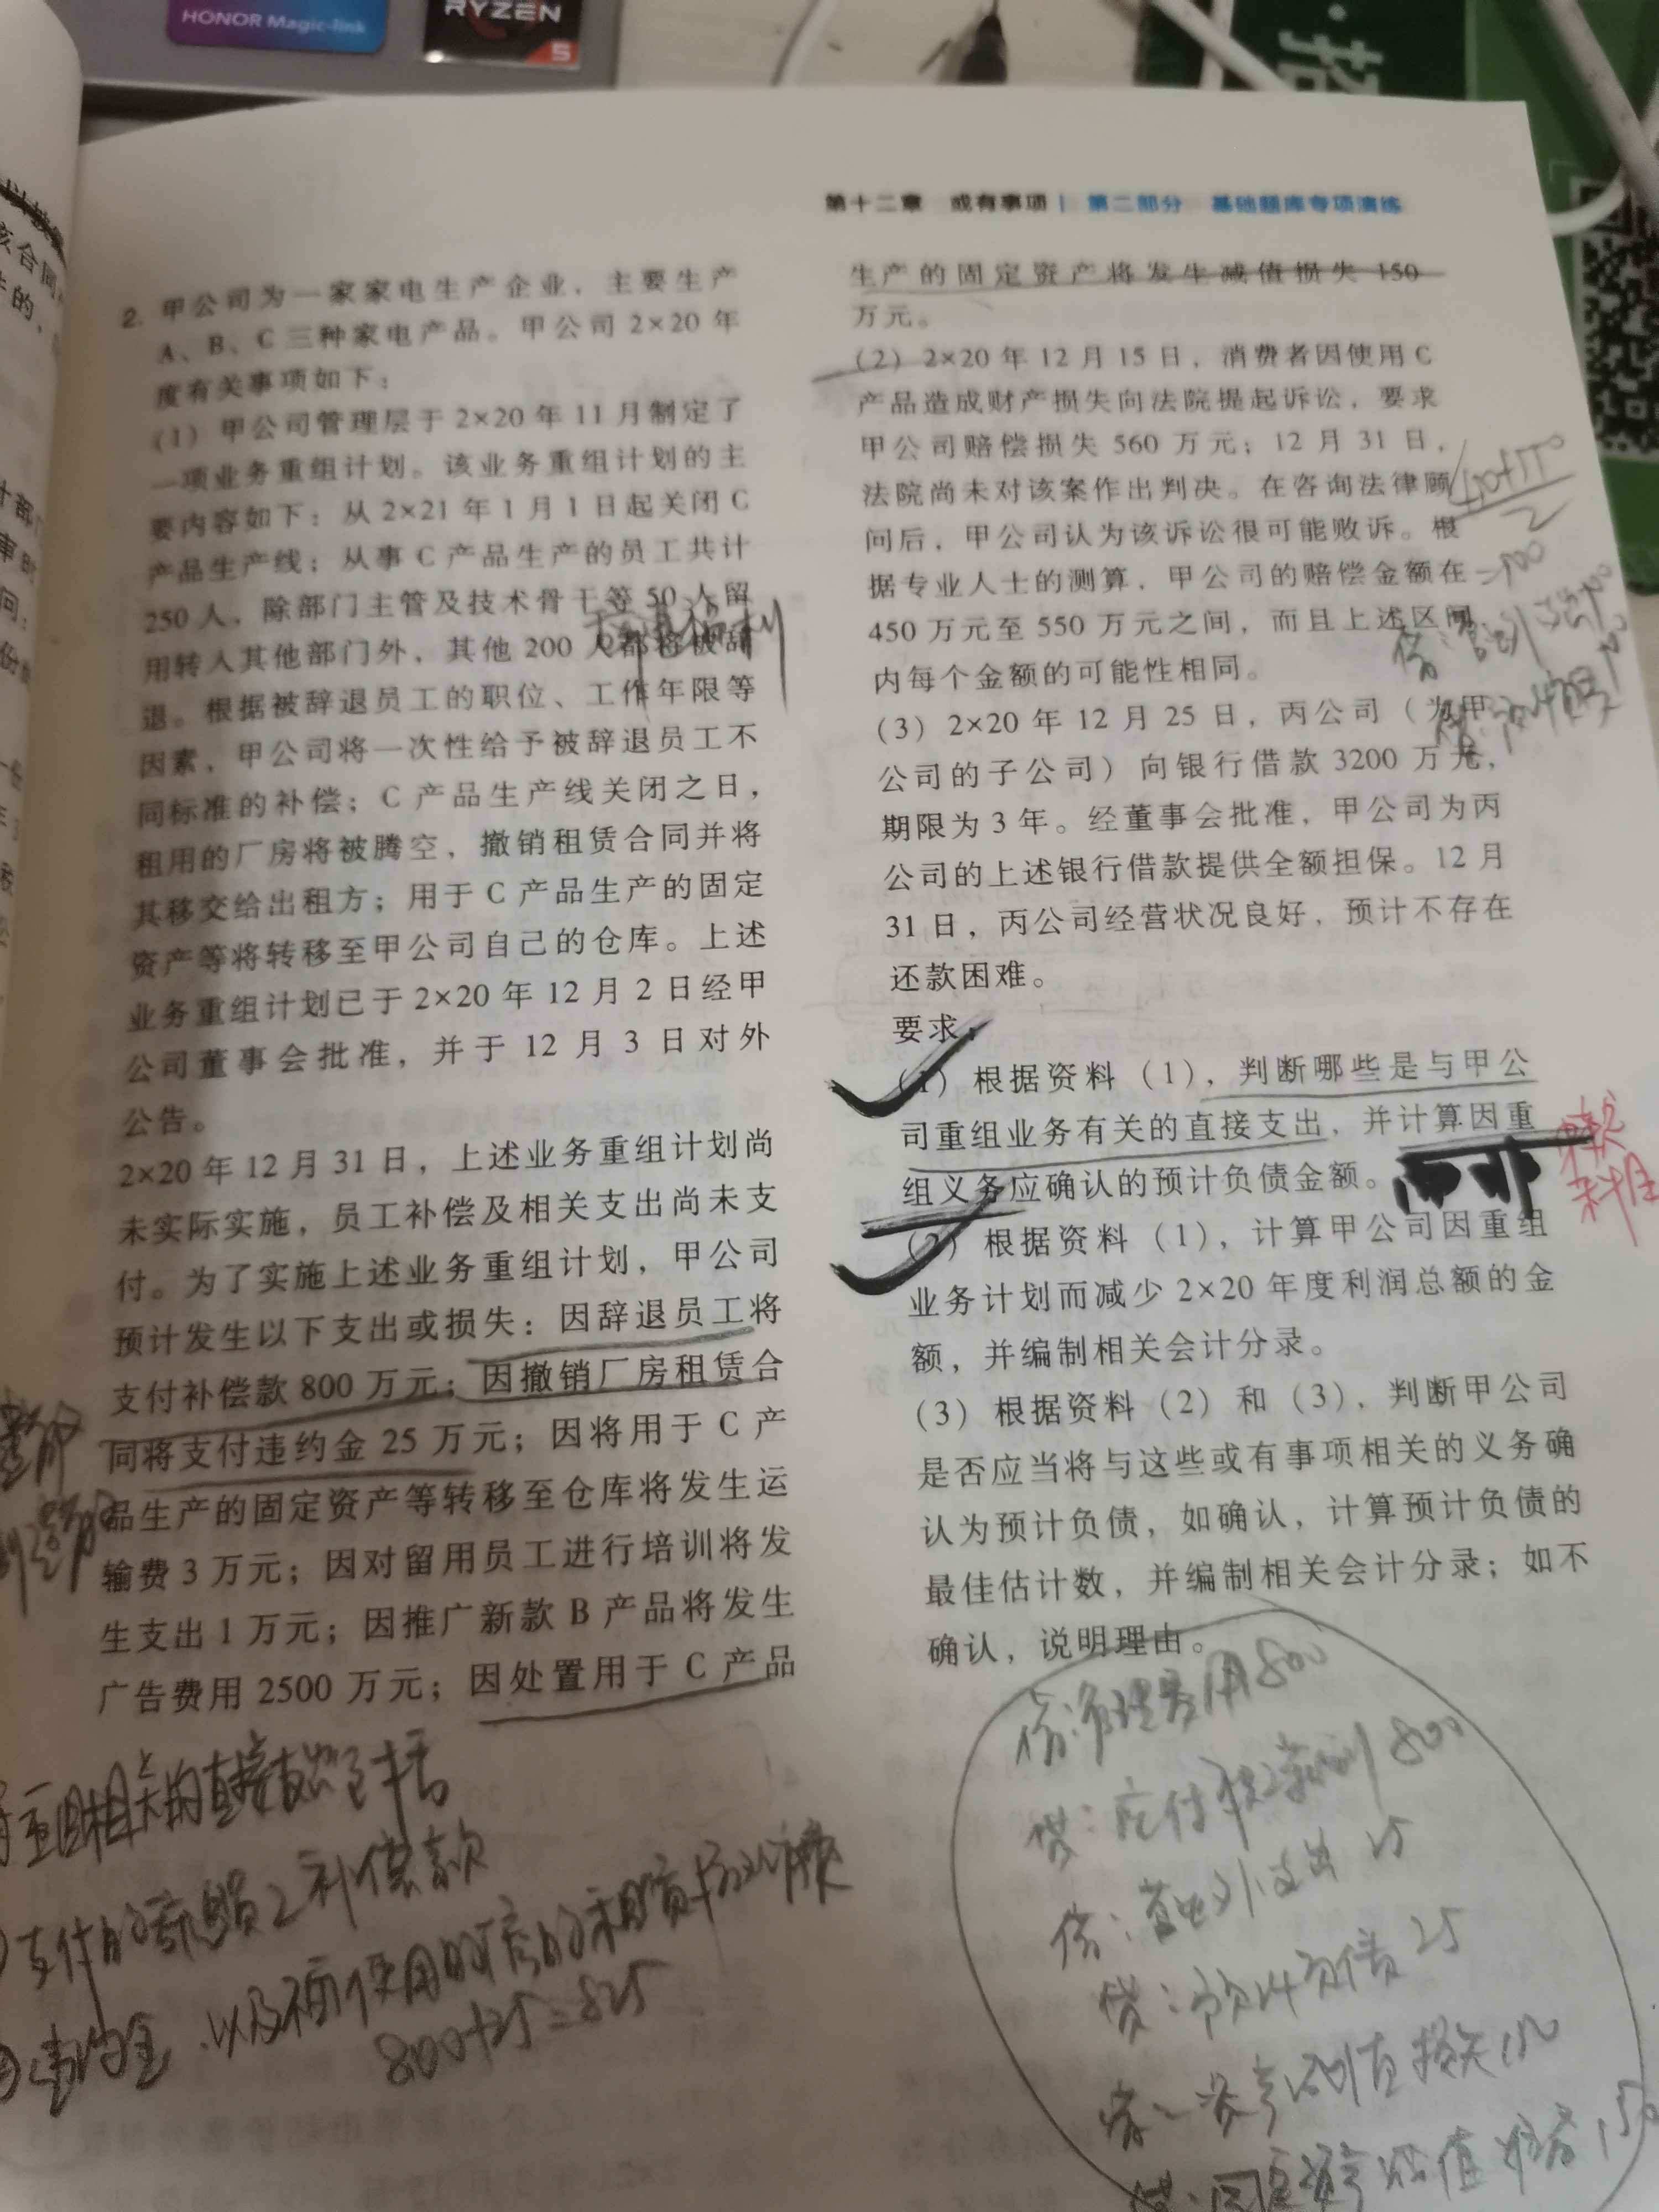 HONOR Magic-link
RYZEN
5
第十二章 或有事项 | 第二部分 基础题库专项演练
2. 甲公司为一家家电生产企业，主要生产
A、B、C三种家电产品。甲公司2×20年
度有关事项如下：
(1) 甲公司管理层于2×20年11月制定了
一项业务重组计划。该业务重组计划的主
要内容如下：从2×21年1月1日起关闭C
产品生产线；从事C产品生产的员工共计
250人，除部门主管及技术骨干等50人留
用转入其他部门外，其他200人都将被辞
退。根据被辞退员工的职位、工作年限等
因素，甲公司将一次性给予被辞退员工不
同标准的补偿；C产品生产线关闭之日，
租用的厂房将被腾空，撤销租赁合同并将
其移交给出租方；用于C产品生产的固定
资产等将转移至甲公司自己的仓库。上述
业务重组计划已于2×20年12月2日经甲
公司董事会批准，并于12月3日对外
公告。
2×20年12月31日，上述业务重组计划尚
未实际实施，员工补偿及相关支出尚未支
付。为了实施上述业务重组计划，甲公司
预计发生以下支出或损失：因辞退员工将
支付补偿款800万元；因撤销厂房租赁合
同将支付违约金25万元；因将用于C产
品生产的固定资产等转移至仓库将发生运
输费3万元；因对留用员工进行培训将发
生支出1万元；因推广新款B产品将发生
广告费用2500万元；因处置用于C产品
重组相关的直接支出包括
支付的辞退员工补偿款
违约金，以及不再使用的厂房的租赁
800+25=825
生产的固定资产将发生减值损失150
万元。
(2) 2×20年12月15日，消费者因使用C
产品造成财产损失向法院提起诉讼，要求
甲公司赔偿损失560万元；12月31日，
法院尚未对该案作出判决。在咨询法律顾
问后，甲公司认为该诉讼很可能败诉。根
据专业人士的测算，甲公司的赔偿金额在
450万元至550万元之间，而且上述区间
内每个金额的可能性相同。
(3) 2×20年12月25日，丙公司（为甲
公司的子公司）向银行借款3200万元，
期限为3年。经董事会批准，甲公司为丙
公司的上述银行借款提供全额担保。12月
31日，丙公司经营状况良好，预计不存在
还款困难。
要求：
(1) 根据资料（1），判断哪些是与甲公
司重组业务有关的直接支出，并计算因重
组义务应确认的预计负债金额。
(2) 根据资料（1），计算甲公司因重组
业务计划而减少2×20年度利润总额的金
额，并编制相关会计分录。
(3) 根据资料（2）和（3），判断甲公司
是否应当将与这些或有事项相关的义务确
认为预计负债，如确认，计算预计负债的
最佳估计数，并编制相关会计分录；如不
确认，说明理由。
科目
借：管理费用800
贷：应付职工薪酬800
借：营业外支出25
贷：预计负债25
借：资产减值损失150
贷：固定资产减值准备150